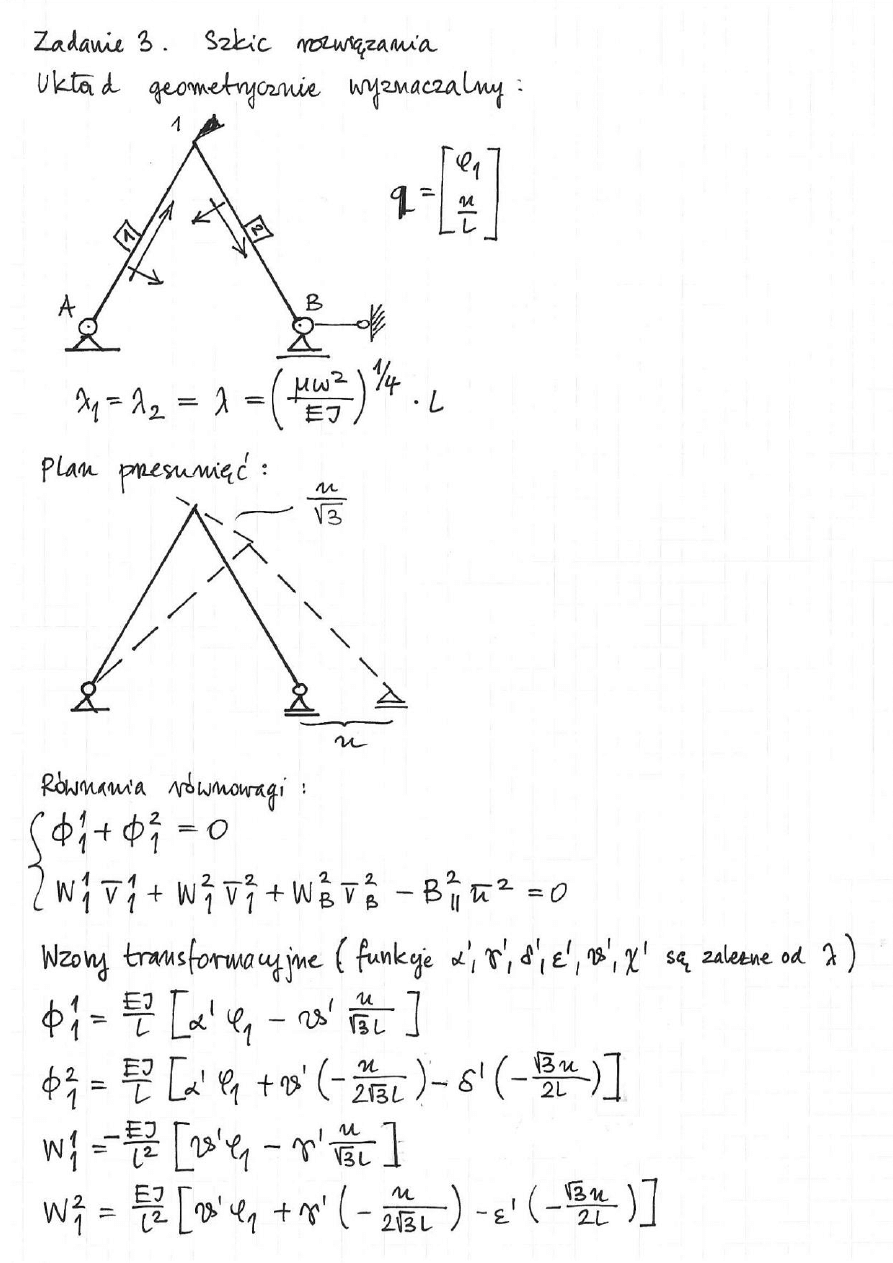 Zadanie 3. Szkic rozwiązania
Układ geometrycznie wyznaczalny:
1
q = [φ₁ u/L]
1
2
A
B
λ₁ = λ₂ = λ = (μω²/EJ)^1/4 · L
Plan przesunięć:
u/√3
u
Równania równowagi:
ϕ₁¹ + ϕ₁² = 0
W₁¹ v̄₁¹ + W₁² v̄₁² + W_B² v̄_B² − B_||² ū² = 0
Wzory transformacyjne (funkcje α', γ', δ', ε', ϑ', χ' są zależne od λ)
ϕ₁¹ = EJ/L [α' φ₁ − ϑ' u/√3L]
ϕ₁² = EJ/L [α' φ₁ + ϑ' (−u/2√3L) − δ' (−√3u/2L)]
W₁¹ = −EJ/L² [ϑ'φ₁ − γ' u/√3L]
W₁² = EJ/L² [ϑ' φ₁ + γ' (−u/2√3L) − ε' (−√3u/2L)]